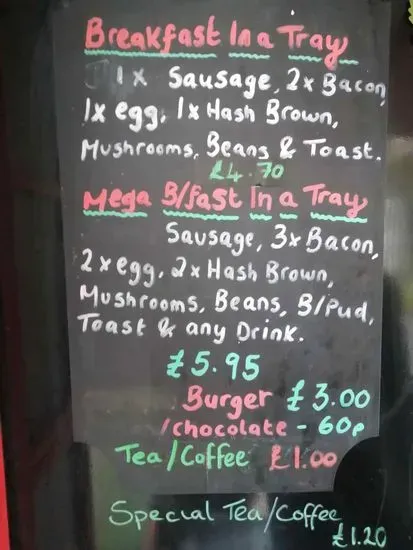 Breakfast In a Tray
1x Sausage, 2x Bacon,
1x egg, 1x Hash Brown,
Mushrooms, Beans & Toast.
£4.70
Mega B/fast In a Tray
Sausage, 3x Bacon,
2x egg, 2x Hash Brown,
Mushrooms, Beans, B/Pud,
Toast & any Drink.
£5.95
Burger £3.00
/chocolate - 60p
Tea/Coffee £1.00
Special Tea/Coffee
£1.20